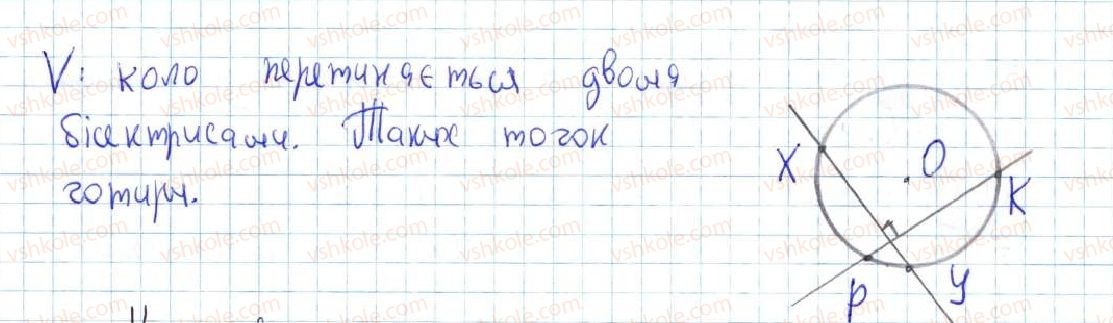 V: коло перетинається двома
бісектрисами. Таких точок
чотири.
X
O
K
P
y
vshkole.com